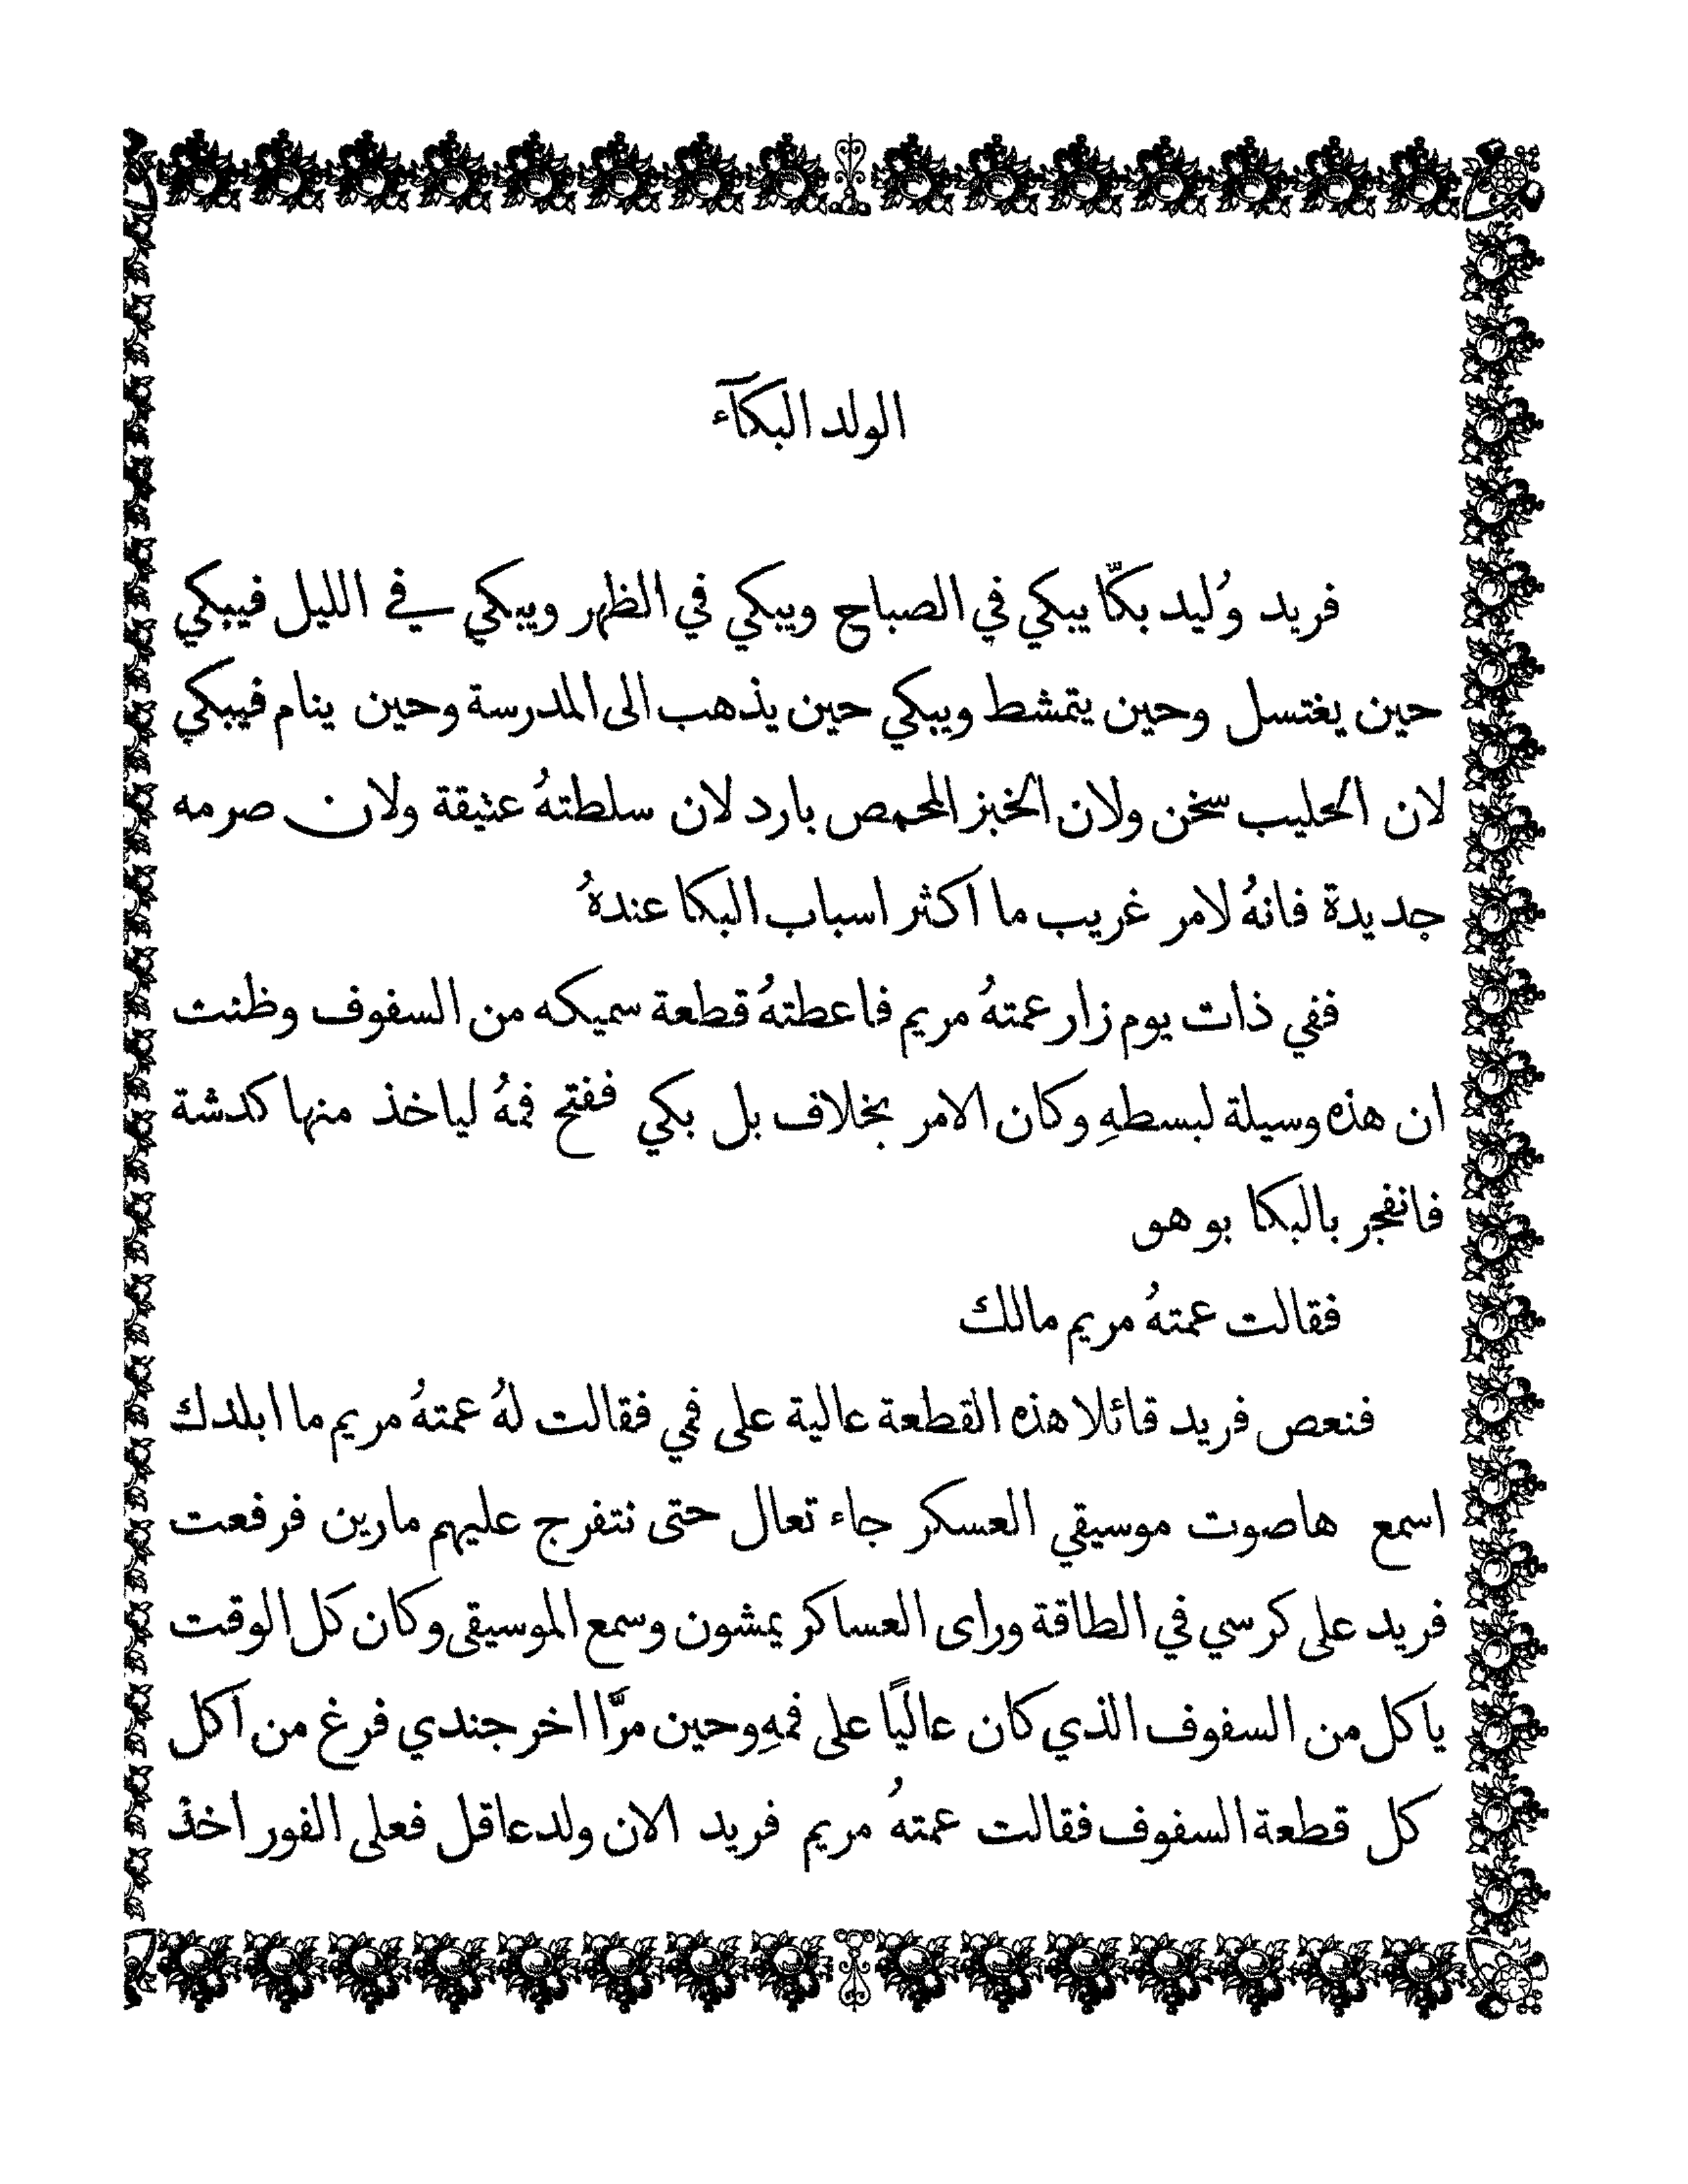 الولد البكآء
فريد وُليد بكّا يبكي في الصباح ويبكي في الظهر ويبكي في الليل فيبكي
حين يغتسل وحين يتمشط ويبكي حين يذهب الى المدرسة وحين ينام فيبكي
لان الحليب سخن ولان الخبز المحمص بارد لان سلطتهُ عتيقة ولان صرمه
جديدة فانهُ لامر غريب ما اكثر اسباب البكا عندهُ
ففي ذات يوم زار عمتهُ مريم فاعطتهُ قطعة سميكه من السفوف وظنت
ان هذه وسيلة لبسطهِ وكان الامر بخلاف بل بكي ففتح فمهُ لياخذ منها كدشة
فانفجر بالبكا بو هو
فقالت عمتهُ مريم مالك
فنعص فريد قائلا هذه القطعة عالية على فمي فقالت لهُ عمتهُ مريم ما ابلدك
اسمع هاصوت موسيقي العسكر جاء تعال حتى نتفرج عليهم مارين فرفعت
فريد على كرسي في الطاقة وراى العساكر يمشون وسمع الموسيقى وكان كل الوقت
ياكل من السفوف الذي كان عاليًا على فمهِ وحين مرَّا اخر جندي فرغ من اكل
كل قطعة السفوف فقالت عمتهُ مريم فريد الان ولد عاقل فعلى الفور اخذ